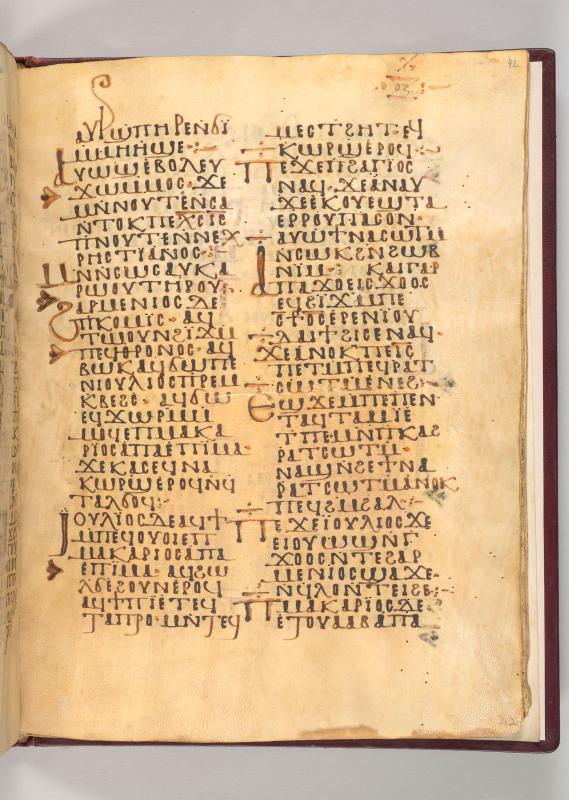 42
ⲟⲍ
ⲁⲩⲣ̄ϣⲡⲏⲣⲉⲛϭⲓ
ⲙⲙⲏⲏϣⲉ
ⲁⲩⲱϣⲉⲃⲟⲗⲉⲩ
ϫⲱⲙⲙⲟⲥ ϫⲉ
ⲙⲛⲛⲟⲩⲧⲉⲛⲥⲁ
ⲛⲧⲟⲕⲡⲉⲭⲥⲓⲥ
ⲡⲛⲟⲩⲧⲉⲛⲛⲉⲭ
ⲣⲏⲥⲧⲓⲁⲛⲟⲥ
ⲙⲛⲛⲥⲱⲥⲁⲩⲕⲁ
ⲣⲱⲟⲩⲧⲏⲣⲟⲩ
ⲁⲣⲙⲉⲛⲓⲟⲥ ⲇⲉ
ⲡⲕⲟⲙⲓⲥ ⲁϥ
ⲧⲱⲟⲩⲛϩⲓϫⲙ
ⲡⲉϥⲑⲣⲟⲛⲟⲥ ⲁϥ
ⲃⲱⲕⲁϥϭⲱⲡⲉ
ⲛⲓⲟⲩⲗⲓⲟⲥⲡⲣⲉⲙ
ⲕⲃⲉϩⲥ ⲁϥϭⲱ
ⲉϥⲭⲱⲣⲙ
ⲙⲟϥⲉⲡⲙⲁⲕⲁ
ⲣⲓⲟⲥⲁⲡⲁⲉⲡⲓⲙⲁ
ϫⲉⲕⲁⲥⲉϥⲛⲁ
ⲕⲱⲣϣⲉⲣⲟϥⲛϥ
ⲧⲁⲗϭⲟϥ
ⲓⲟⲩⲗⲓⲟⲥⲇⲉⲁϥϯ
ⲙⲡⲉϥⲟⲩⲟⲓⲉⲡ
ⲙⲁⲕⲁⲣⲓⲟⲥⲁⲡⲁ
ⲉⲡⲓⲙⲁ ⲁϥϩⲱ
ⲗϭⲉϩⲟⲩⲛⲉⲣⲟϥ
ⲁϥϯⲡⲓⲉⲧⲉϥ
ⲧⲁⲡⲣⲟ ⲙⲛⲧⲉϥ
ⲙⲉⲥⲧϩⲏⲧ ⲉϥ
ⲕⲱⲣϣⲉⲣⲟϥ
ⲡⲉϫⲉⲡϩⲁⲅⲓⲟⲥ
ⲛⲁϥ ϫⲉⲁⲛⲁⲩ
ϫⲉⲉⲕⲟⲩⲉϣⲧⲁ
ⲉⲣⲣⲟⲩⲡⲁⲥⲟⲛ
ⲁⲩⲱϯⲛⲁⲥⲱⲧⲙ
ⲛⲥⲱⲕϩⲛϩⲱⲃ
ⲛⲓⲙ ⲕⲁⲓⲅⲁⲣ
ⲁⲡⲁϫⲟⲉⲓⲥϫⲟⲟⲥ
ⲉϥϩⲓϫⲙⲡⲉ
ⲥϯⲟⲥⲉⲣⲉⲛⲓⲟⲩ
ⲇⲁⲓϯϩⲓⲥⲉⲛⲁϥ
ϫⲉⲁⲛⲟⲕⲡⲉⲓⲥ
ⲡⲉⲧⲙⲡⲉϥⲣⲁⲧ
ⲥⲱⲧⲙⲉⲛⲉϩ
ⲉϣϫⲉⲙⲡⲉⲡⲉⲛ
ⲧⲁϥⲧⲁⲙⲓⲉ
ⲧⲡⲉⲙⲛⲡⲕⲁϩ
ⲣⲁⲧⲥⲱⲧⲙ
ⲛⲁϣⲛϩⲉϯⲛⲁ
ⲣⲁⲧⲥⲱⲧⲙⲁⲛⲟⲕ
ⲡⲉϥϩⲙϩⲁⲗ
ⲡⲉϫⲉⲓⲟⲩⲗⲓⲟⲥϫⲉ
ⲉⲓⲟⲩⲱϣⲛⲅ
ϫⲟⲟⲥⲛⲧⲉϩⲁⲣ
ⲙⲉⲛⲓⲟⲥϣⲁϫⲉ
ⲛϥⲗⲟⲛⲧⲉⲓϩⲉ
ⲡⲙⲁⲕⲁⲣⲓⲟⲥⲇⲉ
ⲉⲧⲟⲩⲁⲁⲃⲁⲡⲁ